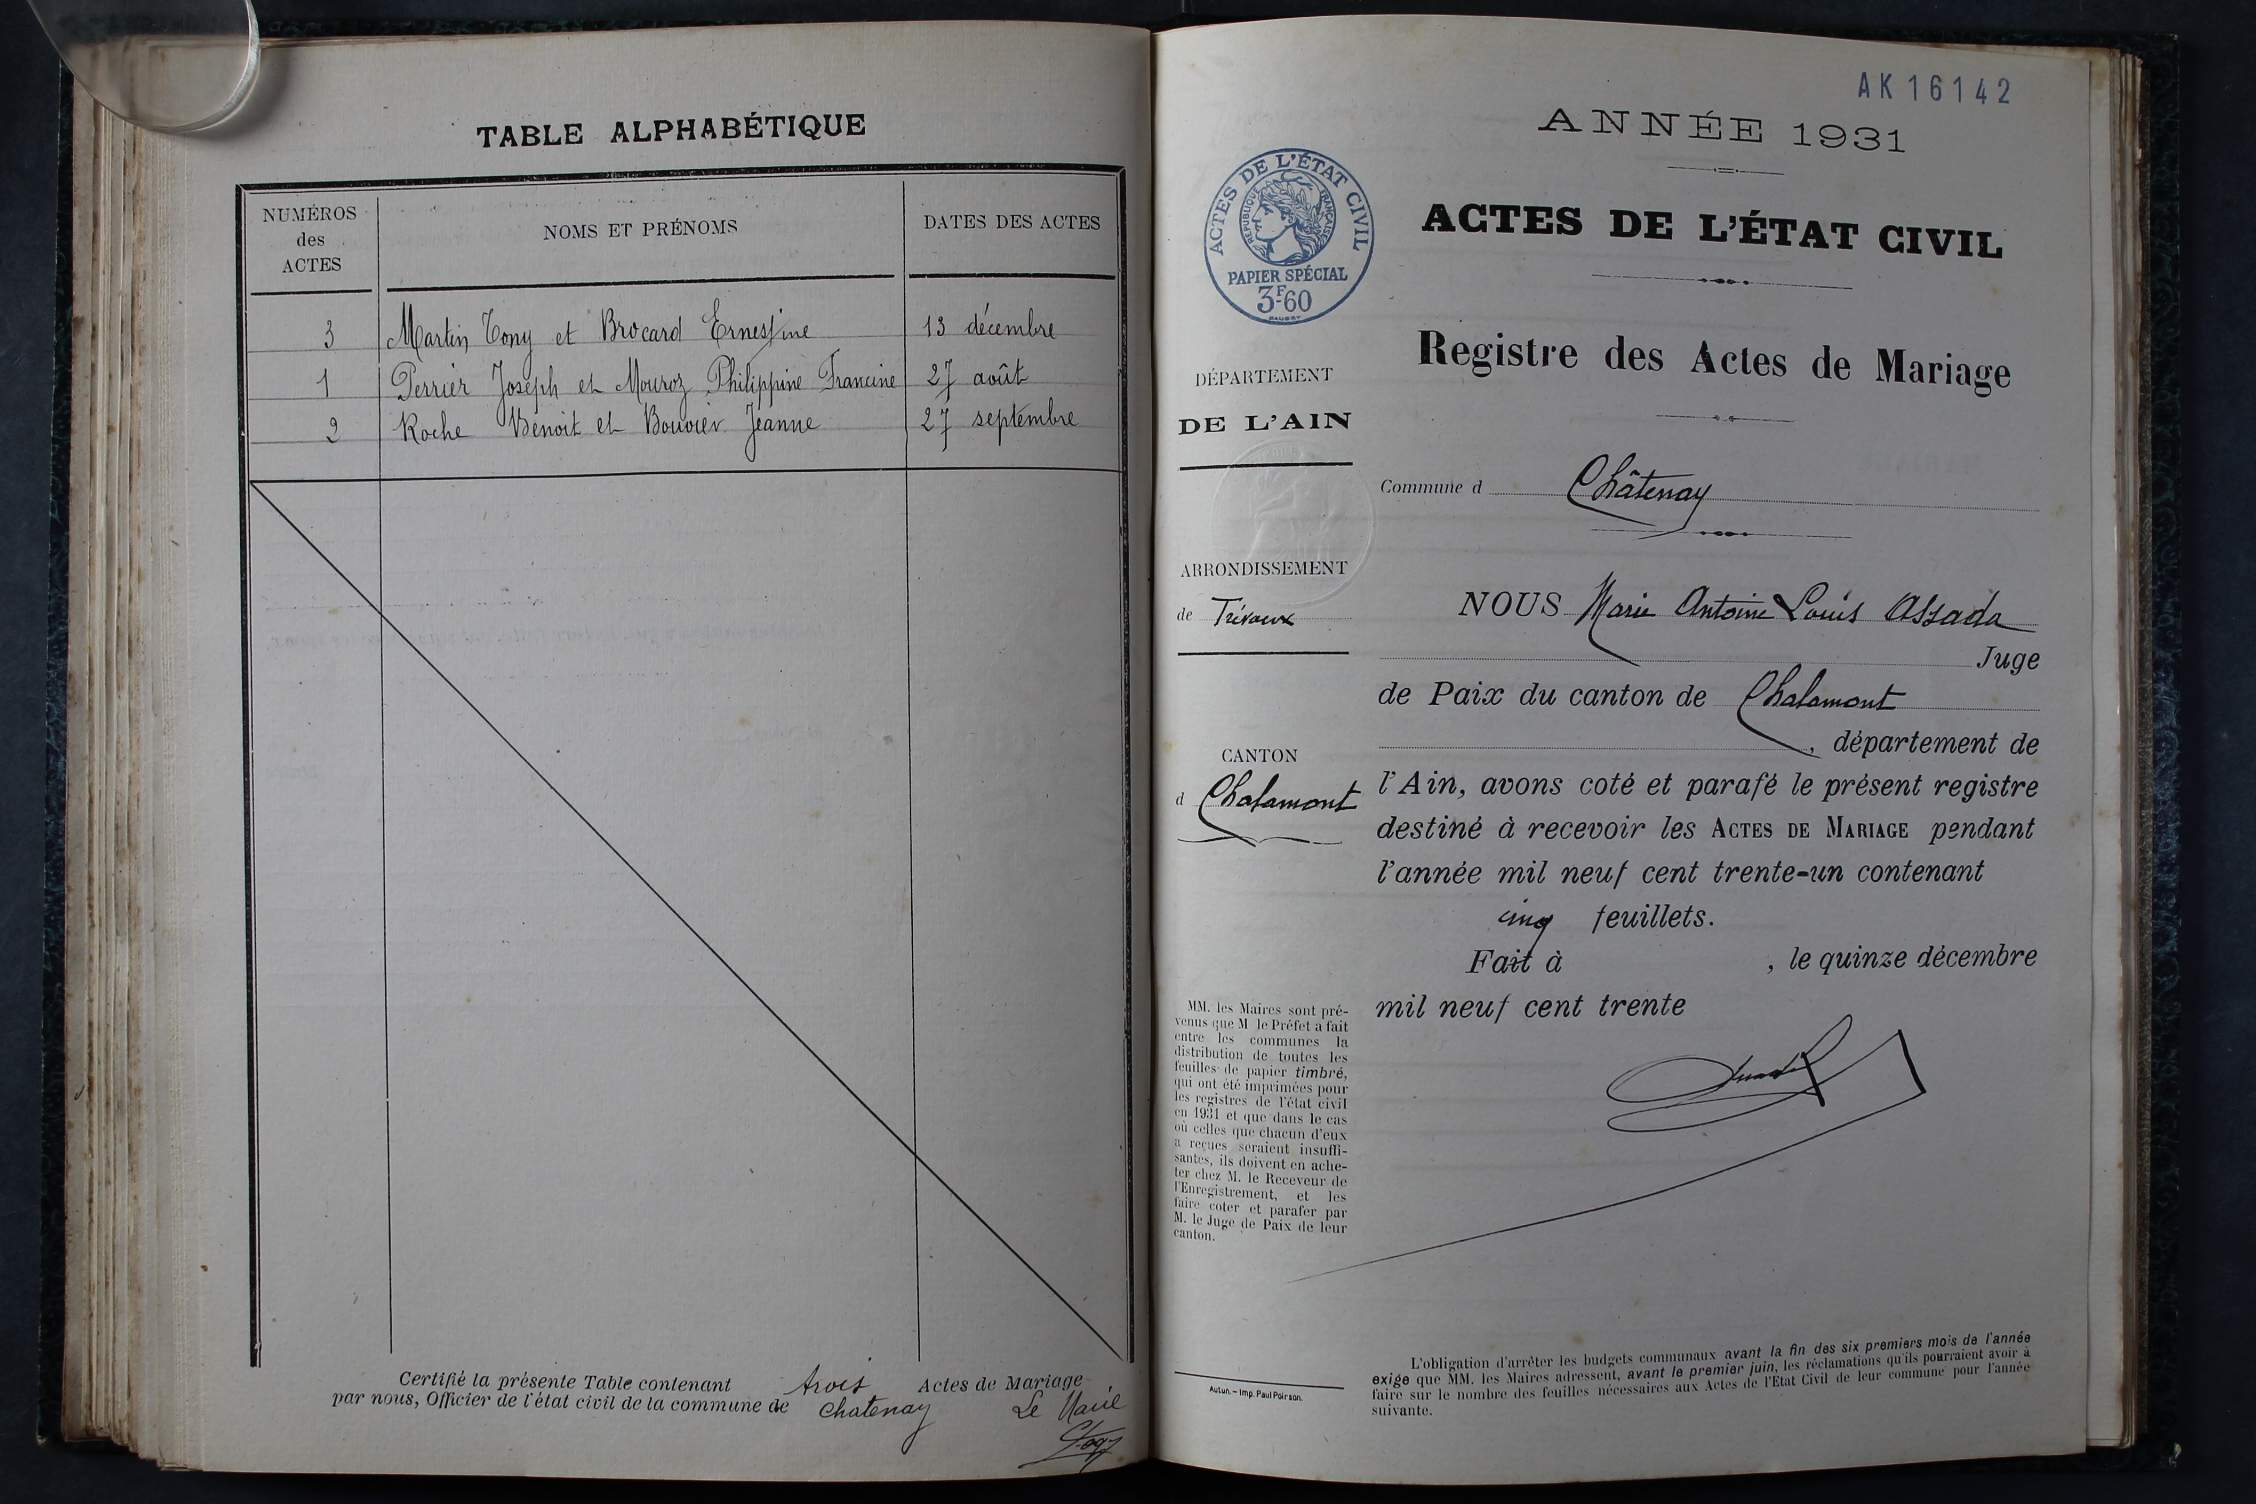 TABLE ALPHABÉTIQUE
NUMÉROS
des
ACTES
NOMS ET PRÉNOMS
DATES DES ACTES
3 Martin Tony et Brocard Ernestine 13 décembre
1 Perrier Joseph et Mouroz Philippine Francine 27 août
2 Roche Benoit et Bouvier Jeanne 27 septembre
Certifié la présente Table contenant trois Actes de Mariage
par nous, Officier de l'état civil de la commune de Chatenay Le Maire
AK 16142
ANNÉE 1931
ACTES DE L'ÉTAT CIVIL
RÉPUBLIQUE FRANÇAISE
PAPIER SPÉCIAL
3F-60
ACTES DE L'ÉTAT CIVIL
Registre des Actes de Mariage
DÉPARTEMENT
DE L'AIN
Commune d Châtenay
ARRONDISSEMENT
de Trévoux
CANTON
d Chalamont
NOUS Marie Antoine Louis Assada
Juge
de Paix du canton de Chalamont
, département de
l'Ain, avons coté et parafé le présent registre
destiné à recevoir les ACTES DE MARIAGE pendant
l'année mil neuf cent trente-un contenant
cinq feuillets.
Fait à , le quinze décembre
mil neuf cent trente
MM. les Maires sont pré-
venus que M le Préfet a fait
entre les communes la
distribution de toutes les
feuilles de papier timbré,
qui ont été imprimées pour
les registres de l'état civil
en 1931 et que dans le cas
où celles que chacun d'eux
a reçues seraient insuffi-
santes, ils doivent en ache-
ter chez M. le Receveur de
l'Enregistrement, et les
faire coter et parafer par
M. le Juge de Paix de leur
canton.
Autun. - Imp. Paul Poirson.
L'obligation d'arrêter les budgets communaux avant la fin des six premiers mois de l'année
exige que MM. les Maires adressent, avant le premier juin, les réclamations qu'ils pourraient avoir à
faire sur le nombre des feuilles nécessaires aux Actes de l'Etat Civil de leur commune pour l'année
suivante.